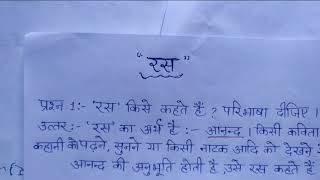 “रस”
प्रश्न 1:- 'रस' किसे कहते हैं ? परिभाषा दीजिए ।
उत्तर:- 'रस' का अर्थ है :- आनन्द । किसी कविता
कहानी को पढ़ने, सुनने या किसी नाटक आदि को देखने
आनन्द की अनुभूति होती है, उसे रस कहते हैं